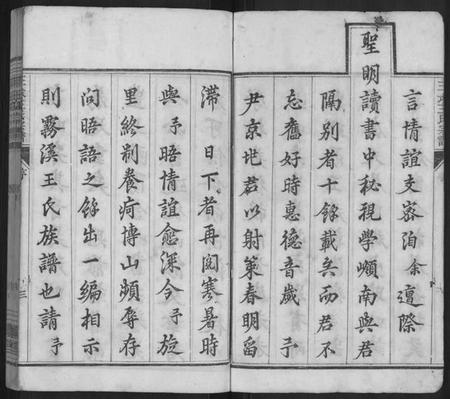 言情誼支寄泊余遭際
聖明讀書中秘視學嶺南與君
隔別者十餘載矣而君不
忘舊好時惠德音歲予
尹京兆君以射策春明留
滯日下者再閱寒暑時
與予晤情誼愈深今予旋
里終制養疴博山頻辱存
問晤語之餘出一編相示
則霧溪王氏族譜也請予